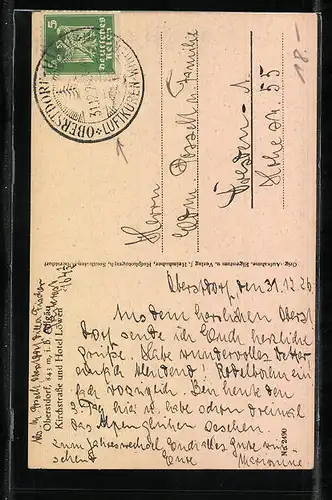 5
Deutsches
Reich
OBERSTDORF
LUFTKURORT
31.12.26
18.-
Herrn
u. Familie
Dresden-A.
Hohe str. 55
Orig.-Aufnahme, Eigentum u. Verlag J. Heimhuber, Hofphotograph, Sonthofen-Oberstdorf
Oberstdorf, 843 m, i. B. Allgäu
Kirchstraße und Hotel Löwen
No. 2490
Oberstdorf, den 31.12.26
Aus dem herrlichen Oberst
dorf sende ich Euch herzliche
Grüße. Habe wundervolles Wetter
blendend! Rodelbahn ein
fach vorzüglich. Bin heute den
Tag hier u. habe schon dreimal
das Alpenglühen gesehen.
Zum Jahreswechsel Euch alles Gute wün
schend
Eure Marianne